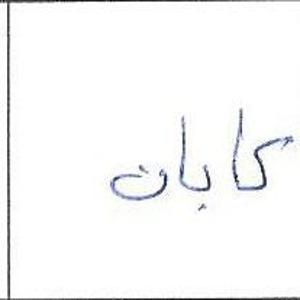 كابان